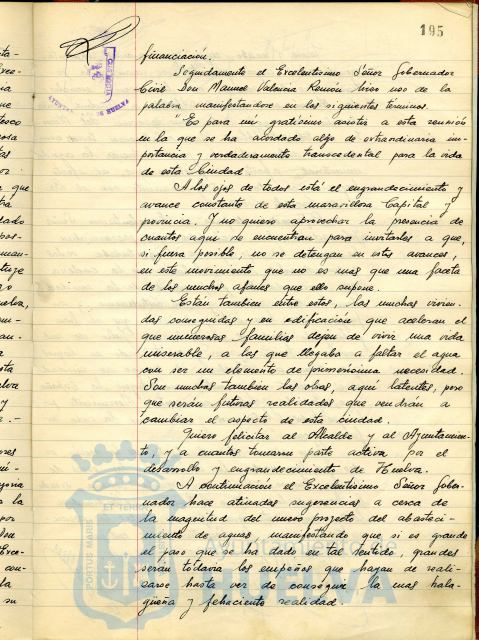 195
financiación.
Seguidamente el Excelentísimo Señor Gobernador
Civil Don Manuel Valencia Remón hizo uso de la
palabra manifestandose en los siguientes terminos.
"Es para mi gratisimo asistir a esta reunión
en la que se ha acordado algo de extraordinaria im-
portancia y verdaderamente transcendental para la vida
de esta Ciudad.
A los ojos de todos está el engrandecimiento y
avance constante de esta maravillosa Capital y
provincia. Y no quiero aprovechar la presencia de
cuantos aqui se encuentran para invitarles a que,
si fuera posible, no se detengan en estos avances,
en este movimiento que no es mas que una faceta
de los muchos afanes que ello supone.
Están tambien entre estos, las muchas vivien-
das conseguidas y en edificación que aceleran el
que numerosas familias dejen de vivir una vida
miserable, a las que llegaba a faltar el agua
con ser un elemento de primerisima necesidad.
Son muchas también las obras, aqui latentes, pero
que serán futuras realidades que vendrán a
cambiar el aspecto de esta ciudad.
Quiero felicitar al Alcalde y al Ayuntamien-
to, y a cuantos tomaron parte activa por el
desarrollo y engrandecimiento de Huelva.
A continuación el Excelentísimo Señor Gober-
nador hace atinadas sugerencias a cerca de
la magnitud del nuevo proyecto del abasteci-
miento de aguas, manifestando que si es grande
el paso que se ha dado en tal sentido, grandes
serán todavia los empeños que hayan de reali-
zarse hasta ver de conseguir la mas hala-
güeña y fehaciente realidad.
PORTUS MARIS
HUELVA